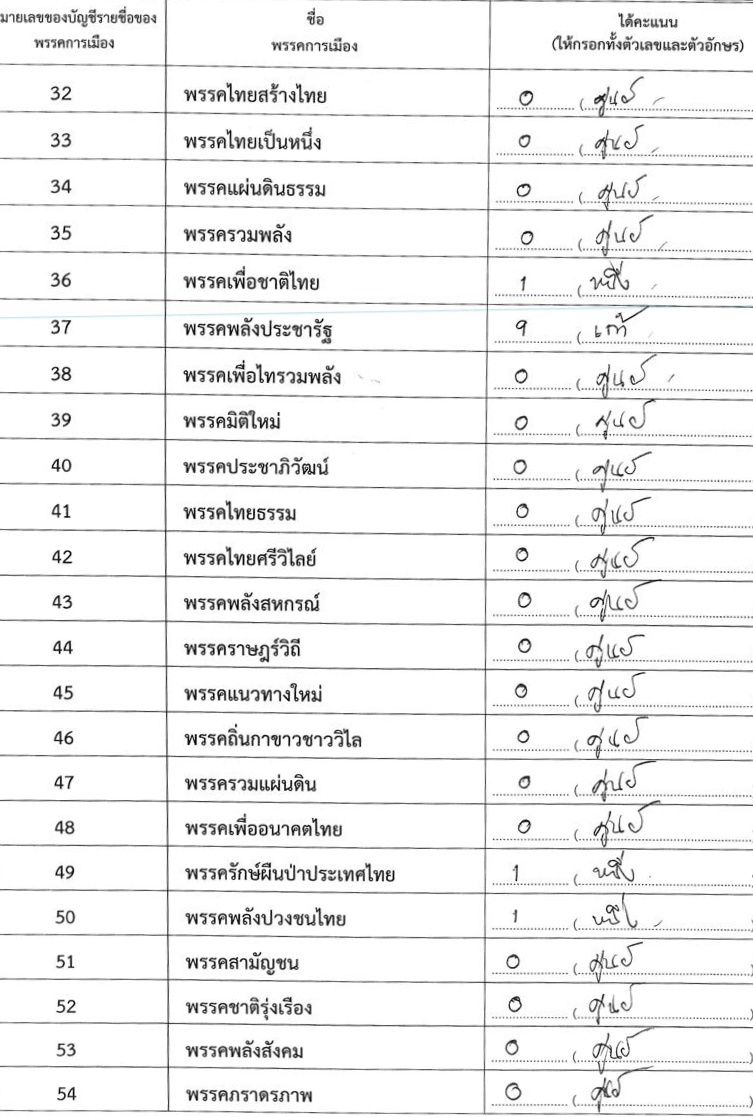 มายเลขของบัญชีรายชื่อของ
พรรคการเมือง
ชื่อ
พรรคการเมือง
ได้คะแนน
(ให้กรอกทั้งตัวเลขและตัวอักษร)
32 พรรคไทยสร้างไทย 0 ( ศูนย์
33 พรรคไทยเป็นหนึ่ง 0 ( ศูนย์
34 พรรคแผ่นดินธรรม 0 ( ศูนย์
35 พรรครวมพลัง 0 ( ศูนย์
36 พรรคเพื่อชาติไทย 1 ( หนึ่ง
37 พรรคพลังประชารัฐ 9 ( เก้า
38 พรรคเพื่อไทรวมพลัง 0 ( ศูนย์
39 พรรคมิติใหม่ 0 ( ศูนย์
40 พรรคประชาภิวัฒน์ 0 ( ศูนย์
41 พรรคไทยธรรม 0 ( ศูนย์
42 พรรคไทยศรีวิไลย์ 0 ( ศูนย์
43 พรรคพลังสหกรณ์ 0 ( ศูนย์
44 พรรคราษฎร์วิถี 0 ( ศูนย์
45 พรรคแนวทางใหม่ 0 ( ศูนย์
46 พรรคถิ่นกาขาวชาววิไล 0 ( ศูนย์
47 พรรครวมแผ่นดิน 0 ( ศูนย์
48 พรรคเพื่ออนาคตไทย 0 ( ศูนย์
49 พรรครักษ์ผืนป่าประเทศไทย 1 ( หนึ่ง
50 พรรคพลังปวงชนไทย 1 ( หนึ่ง
51 พรรคสามัญชน 0 ( ศูนย์ )
52 พรรคชาติรุ่งเรือง 0 ( ศูนย์ )
53 พรรคพลังสังคม 0 ( ศูนย์ )
54 พรรคภราดรภาพ 0 ( ศูนย์ )